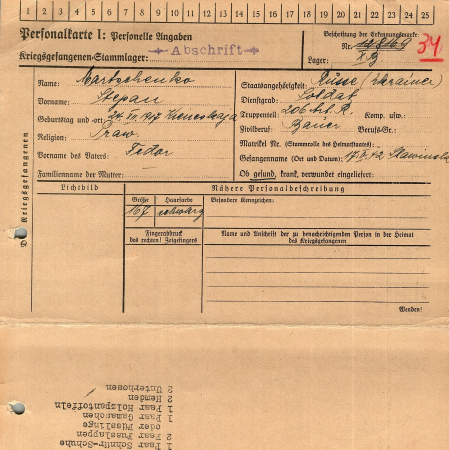 1 2 3 4 5 6 7 8 9 10 11 12 13 14 15 16 17 18 19 20 21 22 23 24 25
Personalkarte I: Personelle Angaben
Kriegsgefangenen-Stammlager:
Abschrift
Beschriftung der Erkennungsmarke:
Nr.
34
Lager: X B
Des Kriegsgefangenen
Name: Martschenko
Vorname: Stepan
Geburtstag und -ort: 24.XII.1917
Religion: Praw
Vorname des Vaters: Fedor
Familienname der Mutter:
Staatsangehörigkeit: Russe (Ukrainer)
Dienstgrad: Soldat
Truppenteil: 206 Art. R. Komp. usw.:
Zivilberuf: Bauer Berufs-Gr.:
Matrikel Nr. (Stammrolle des Heimatstaates):
Gefangennahme (Ort und Datum):
Ob gesund, krank, verwundet eingeliefert:
Lichtbild
Nähere Personalbeschreibung
Größe Haarfarbe Besondere Kennzeichen:
167 schwarz
Fingerabdruck
des rechten! Zeigefingers
Name und Anschrift der zu benachrichtigenden Person in der Heimat
des Kriegsgefangenen
Wenden!
1 Paar Schnür-Schuhe
2 Paar Fusslappen
oder Füsslinge
1 Paar Gamaschen
1 Paar Holzpantoffeln
2 Hemden
2 Unterhosen